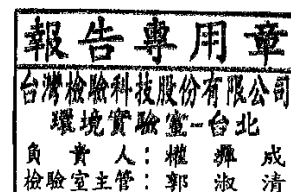 報告專用章
台灣檢驗科技股份有限公司
環境實驗室-台北
負責人：
檢驗室主管：郭淑清